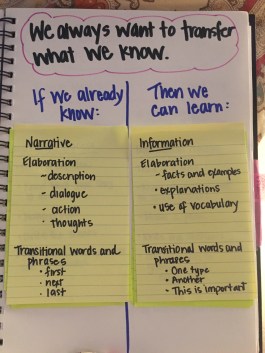 We always want to transfer
what we know.
If we already
know:
Then we
can learn:
Narrative
Elaboration
- description
- dialogue
- action
- Thoughts
Transitional words and
phrases
• first
• next
• last
Information
Elaboration
- facts and examples
• explanations
• use of vocabulary
Transitional words and
phrases
• One type
• Another
• This is important